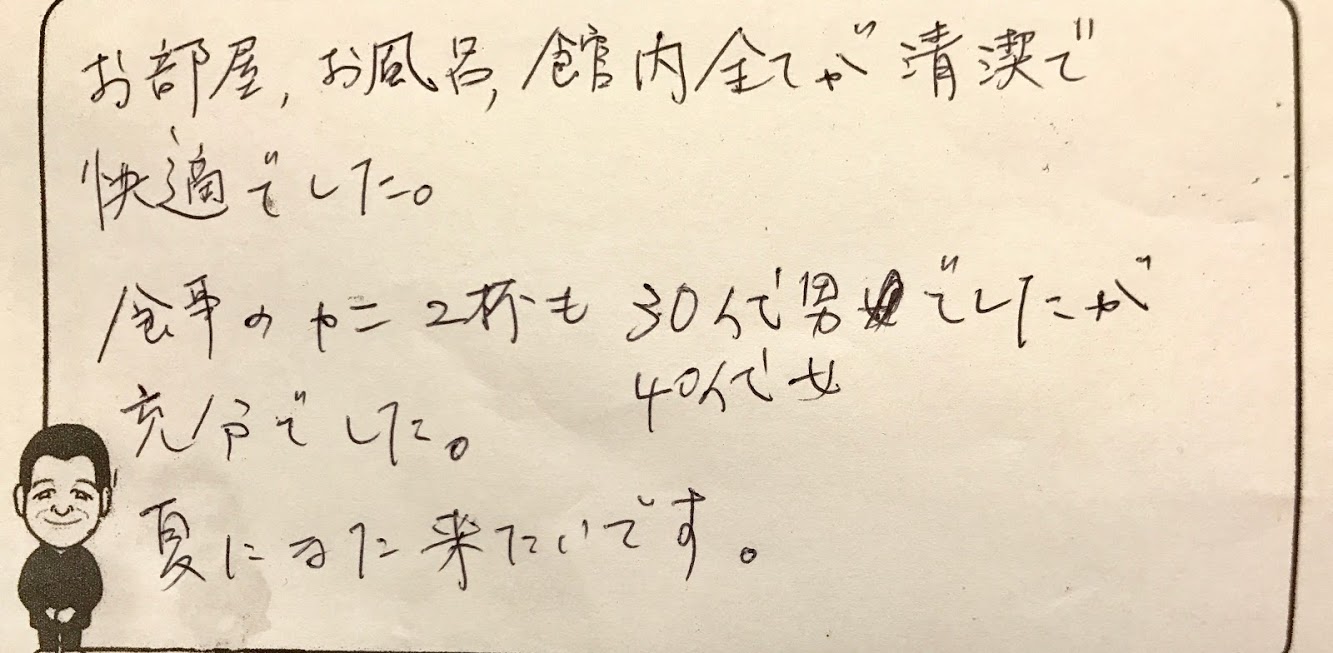 お部屋,お風呂,館内全てが清潔で
快適でした。
食事のカニ2杯も 30代で男でしたが
40代で女
充分でした。
夏にまた来たいです。